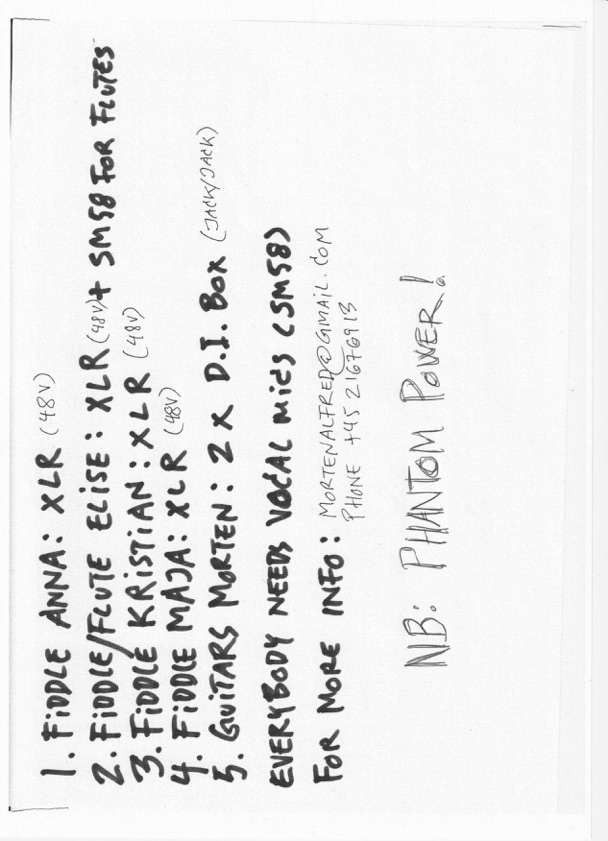 1. FIDDLE ANNA: XLR (48V)
2. FIDDLE/FLUTE ELISE: XLR (48V) + SM58 FOR FLUTES
3. FIDDLE KRISTIAN: XLR (48V)
4. FIDDLE MAJA: XLR (48V)
5. GUITARS MORTEN: 2 X D.I. BOX (JACK/JACK)
EVERYBODY NEEDS VOCAL MICS (SM58)
FOR MORE INFO: MORTENALFRED@GMAIL.COM
PHONE +45 21676913
NB: PHANTOM POWER!